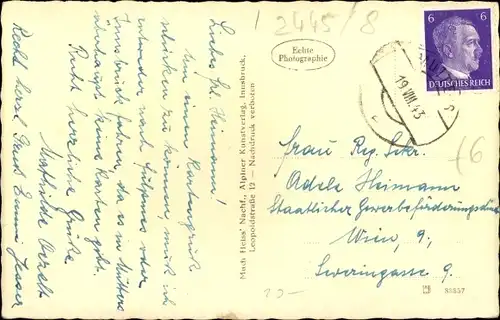 2445/8
Echte
Photographie
6 6
DEUTSCHES REICH
19.VIII.43
Liebes Frl. Heimann!
Um einen Kartengruß
schicken zu können, muß ich
entweder nach Fulpmes oder
Innsbruck fahren, da es in Mutters
überhaupt keine Karten gibt.
Recht herzliche Grüße
Mathilde
Recht herzl. Emmi
Much Heiss' Nachf., Alpiner Kunstverlag, Innsbruck,
Leopoldstraße 12 — Nachdruck verboten
Frau Reg. Sekr.
Adele Heimann
Staatlicher Gewerbeförderungsdienst
Wien, 9,
Severingasse 9.